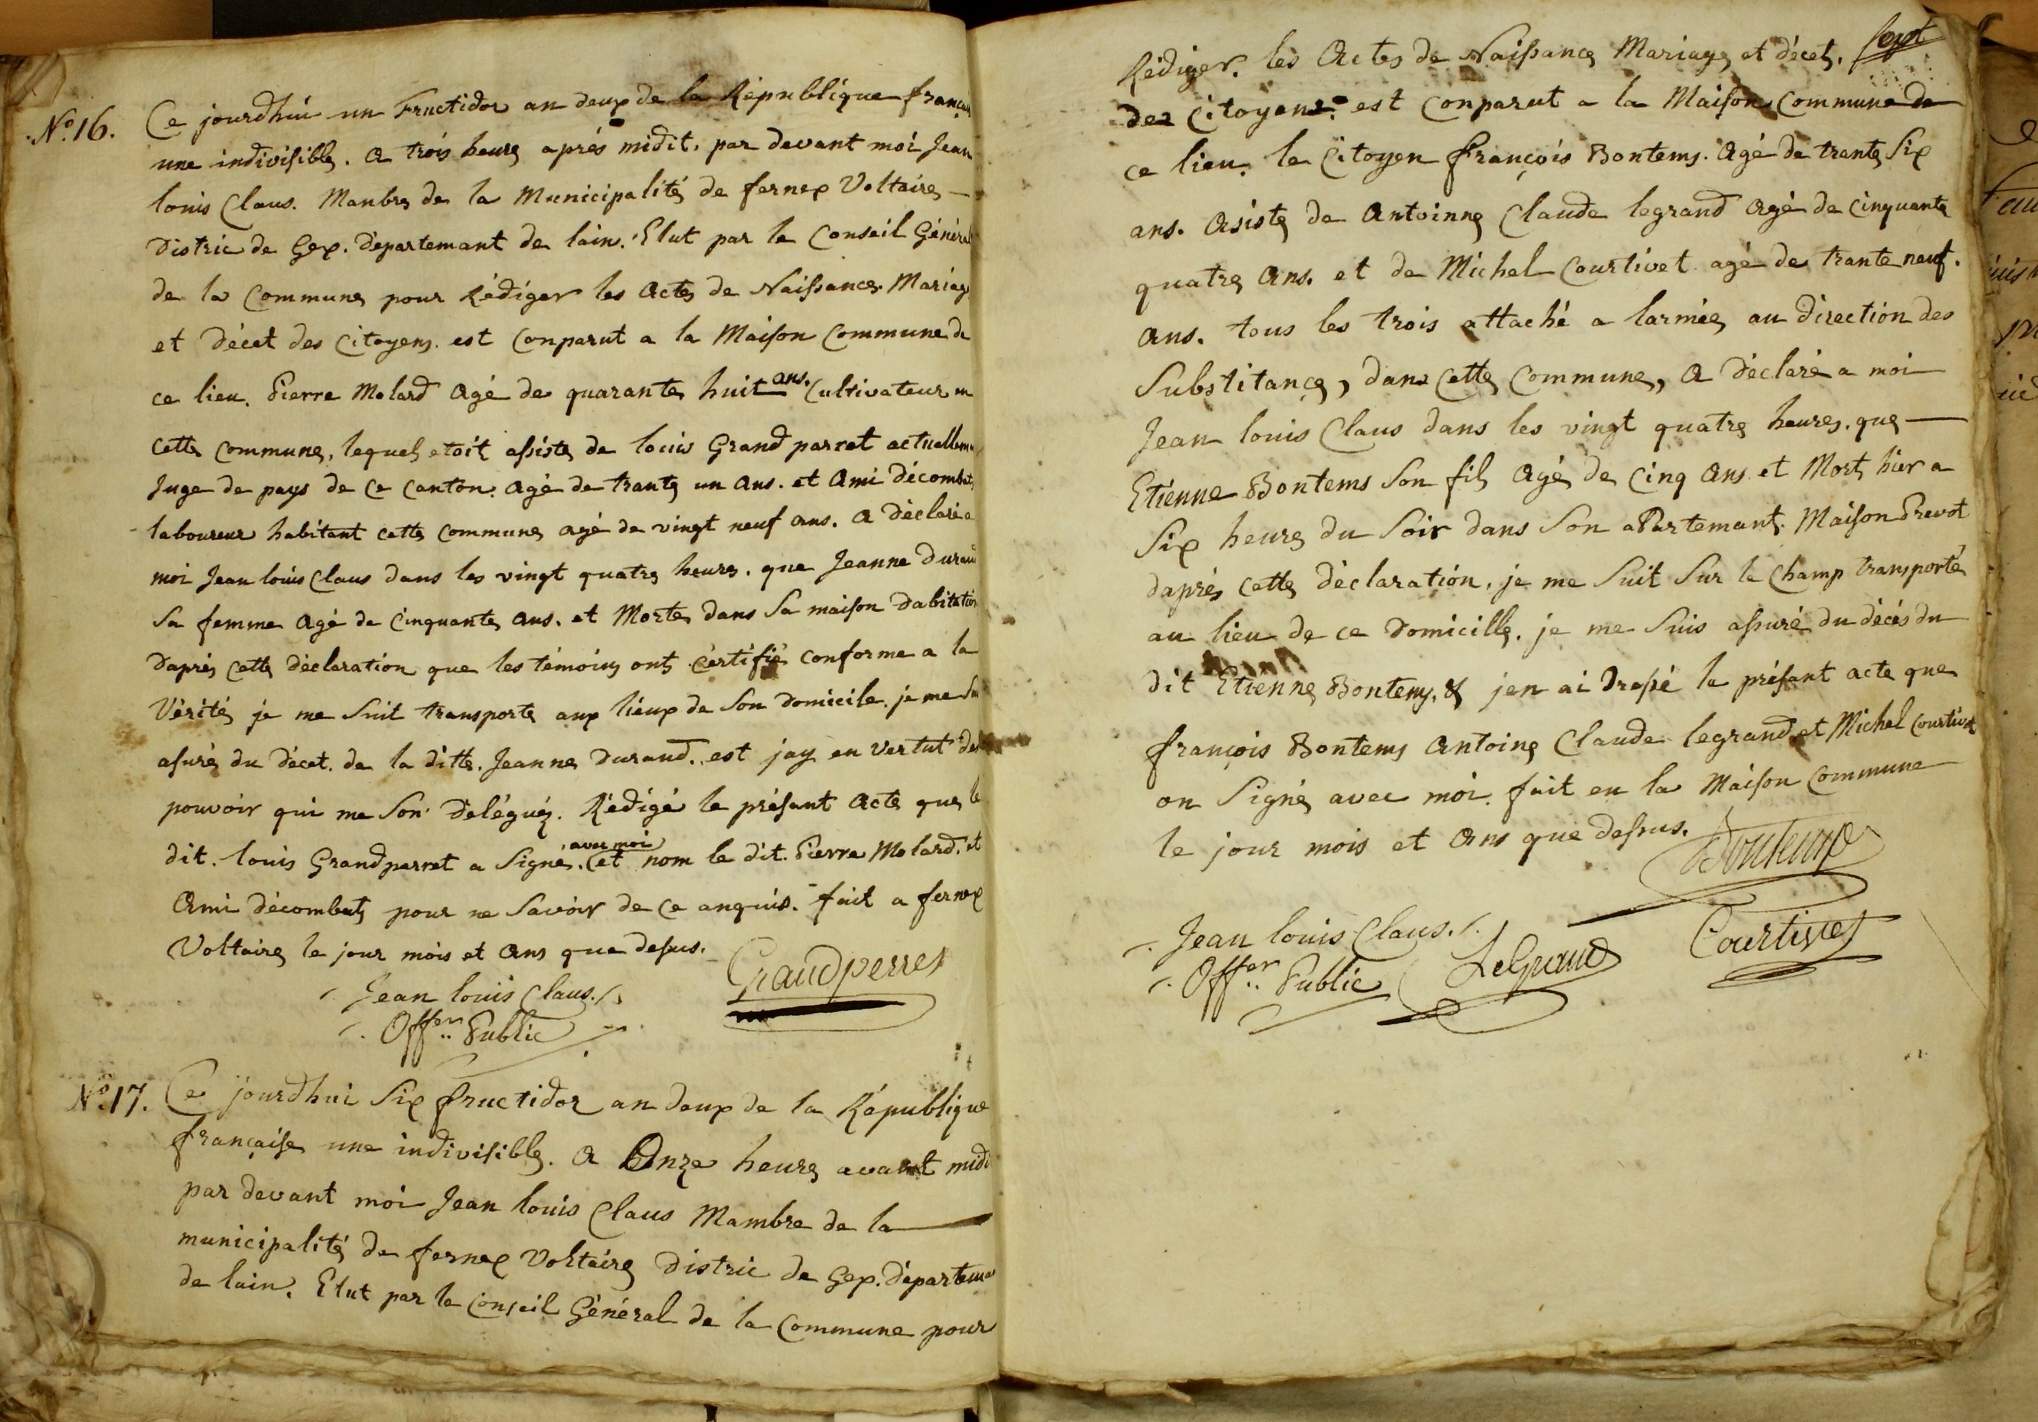 N.º 16. Ce jourdhui un Fructidor an deux de la République françai
une indivisible. a trois heure après midit. par devant moi Jean
louis Claus. Manbre de la Municipalité de fernex Voltaire
District de Gex. Département de lain. Elut par le Conseil Généra
de la Commune pour Rédiger les Actes de Naissance Mariage
et Décet des Citoyens. est Conparut a la Maison Commune de
ce lieu. Pierre Molard Agé de quarante huit ans. Cultivateur en
Cette Commune, lequel etoit assisté de louis Grand parret actuellem
Juge de pays de Ce Canton. Agé de trante un Ans. et Ami Décombet
laboureur habitant Cette Commune agé de vingt neuf ans. a Déclaré a
moi Jean louis Claus dans les vingt quatre heure. que Jeanne Duran
Sa femme Agé de Cinquante Ans. et Morte dans Sa maison Dabitation
Daprès Cette Déclaration que les témoins ont Certifié conforme a la
Vérité, je me Suit transporté aux lieux de Son Domicile. je me Su
asuré du Décet. de la ditte. Jeanne Durand. est jay en Vertut des
pouvoir qui me Son Délégué. Rédigé le présant Acte que le
dit. louis Grandperret a Signé. avec moi (et nom le dit. Pierre Molard. et
Ami Décombet pour ne Savoir de Ce anquis. fait a fernex
Voltaire le jour mois et Ans que desus.
Grandperret
Jean louis Claus.
Off.er Public
N.º 17. Ce jourdhui Six fructidor an deux de la République
française une indivisible. a Onze heure avant midi
par devant moi Jean louis Claus Mambre de la
municipalité de fernex Voltaire District de Gex. départeme
de lain. Elut par le Conseil Général de la Commune pour
Rédiger. les Actes de Naissance Mariage et décet. Sept
des Citoyens. est Conparut a la Maison Commune de
ce lieu. le Citoyen françois Bontems. Agé de trante Six
ans. Asisté de Antoinne Claude legrand Agé de Cinquante
quatre Ans. et de Michel Courtivet agé de trante neuf.
Ans. tous les trois attaché a larmée au direction des
Substitance, dans Cette Commune, A Déclaré a moi
Jean louis Claus dans les vingt quatre heures. que
Etienne Bontems Son fils Agé de Cinq Ans. et Mort hier a
Six heure du Soir dans Son aPartemant. Maison Prevot
daprès Cette déclaration. je me Suit Sur le Champ transporté
au lieu de ce Domicille. je me Suis assuré du décés du
dit Etienne Bontems. & jen ai Dressé le présant acte que
françois Bontems Antoine Claude legrand et Michel Courtivet
on Signé avec moi. fait en la Maison Commune
le jour mois et Ans que dessus.
Bontems
Jean louis Claus.
Off.er Public LeGrand Courtivet